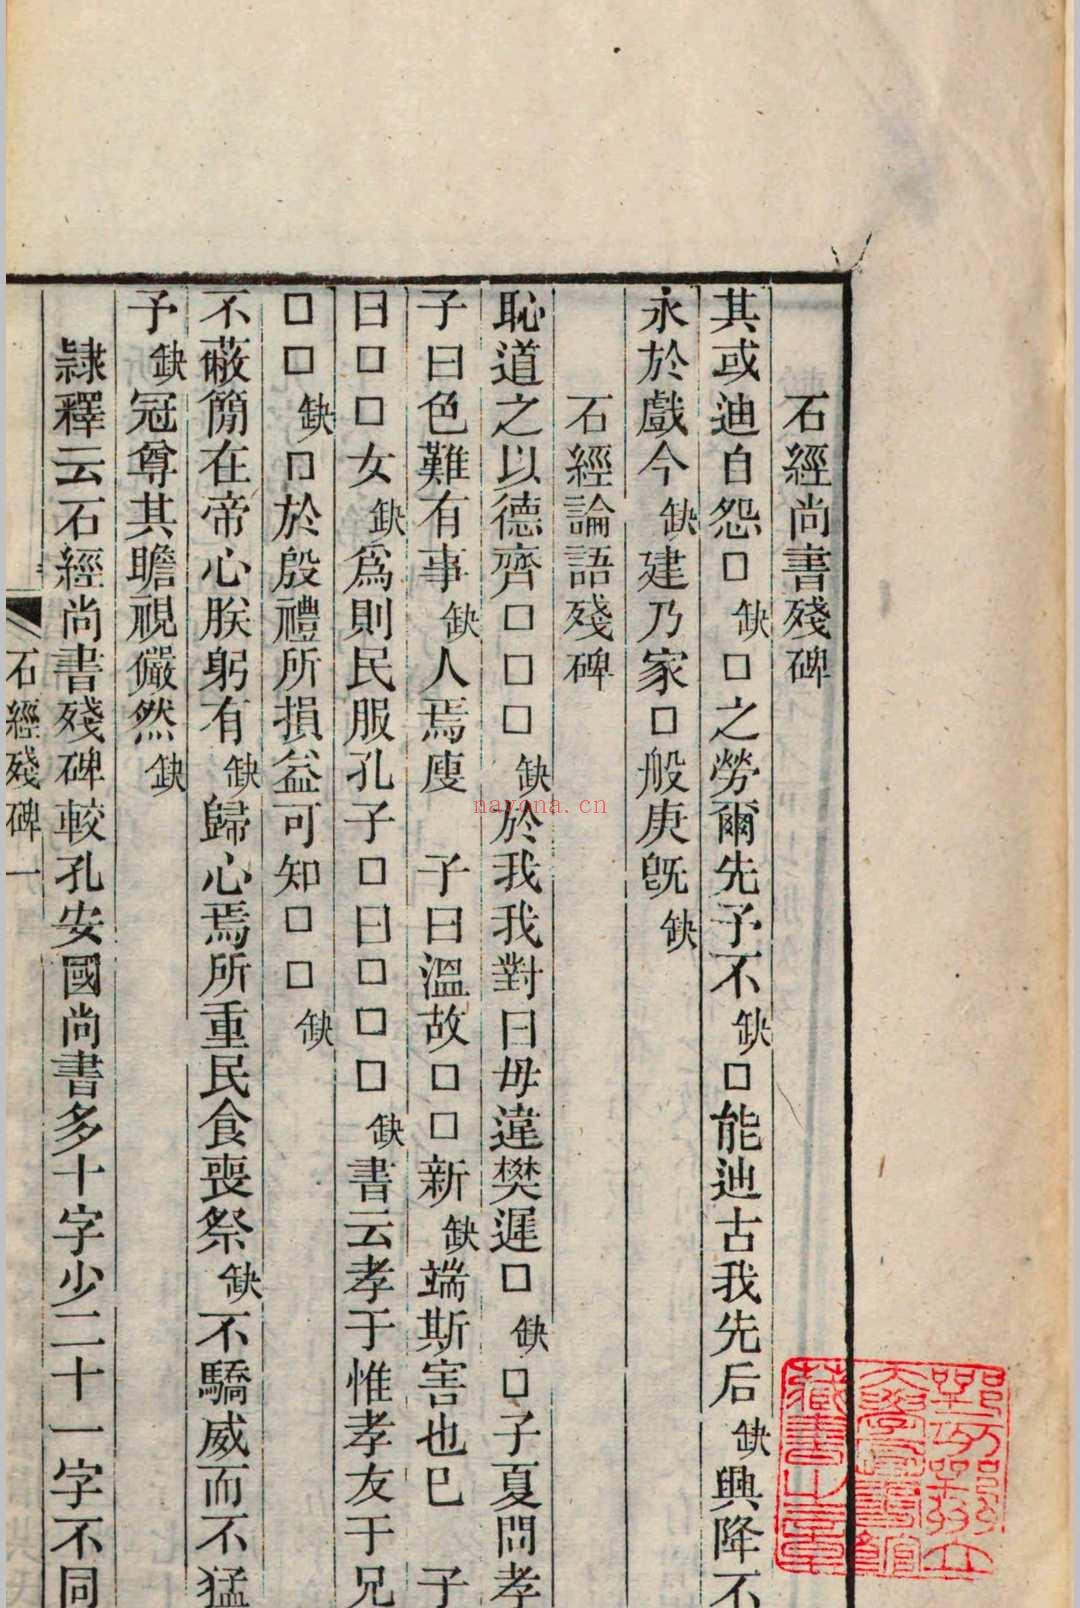 石經尚書殘碑
其或迪自怨□缺□之勞爾先予不缺□能迪古我先后缺興降不
永於戲今缺建乃家□般庚旣缺
石經論語殘碑
恥道之以德齊□□□缺於我我對曰毋違樊遲□缺□子夏問孝
子曰色難有事缺人焉廋 子曰溫故□□新缺端斯害也已 子
曰□□女缺爲則民服孔子□曰□□□缺書云孝于惟孝友于兄
□□缺□於殷禮所損益可知□□缺
不蔽簡在帝心朕躬有缺歸心焉所重民食喪祭缺不驕威而不猛
予缺冠尊其瞻視儼然缺
隸釋云石經尚書殘碑較孔安國尚書多十字少二十一字不同
石經殘碑 一
nayona.cn